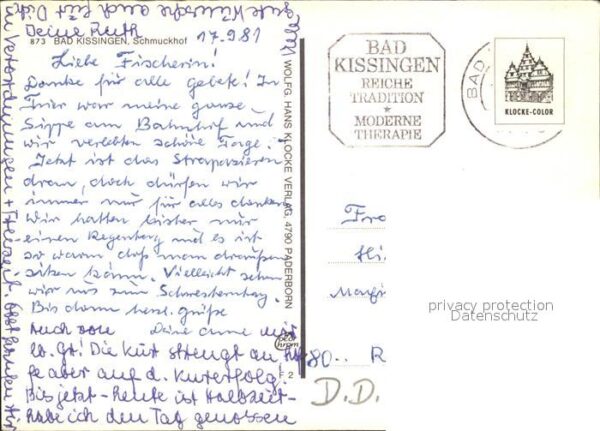 873 BAD KISSINGEN, Schmuckhof
17.9.81
Liebe Fischerin!
Danke für alle Gebete! In
Trier war meine ganze
Sippe am Bahnhof und
wir verlebten schöne Tage.
Jetzt ist das Strapazieren
dran, doch dürfen wir
immer nur für alles danken
Wir hatten bisher nur
einen Regentag und es ist
so warm, daß man draußen
sitzen kann. Vielleicht sehen
wir uns zum Schwesterntag.
Bis dann herzl. Grüße
Deine Anne
Auch von mir
lb. Gr! Die Kur strengt an,
aber auf d. Kurerfolg!
Bis jetzt - heute ist Halbzeit -
habe ich den Tag genossen
in Verordnungen + Freizeit.
gute Wünsche auch für Dich
Deine Ruth
WOLFG. HANS KLOCKE VERLAG, 4790 PADERBORN
F 2
BAD
KISSINGEN
REICHE
TRADITION
★
MODERNE
THERAPIE
BAD
KLOCKE-COLOR
Fra
Hi
privacy protection
Datenschutz
80.. R
D.D.